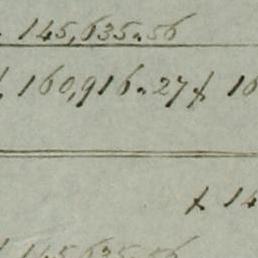 145,635.56
160,916.27 £ 16
£ 14
145,635.56